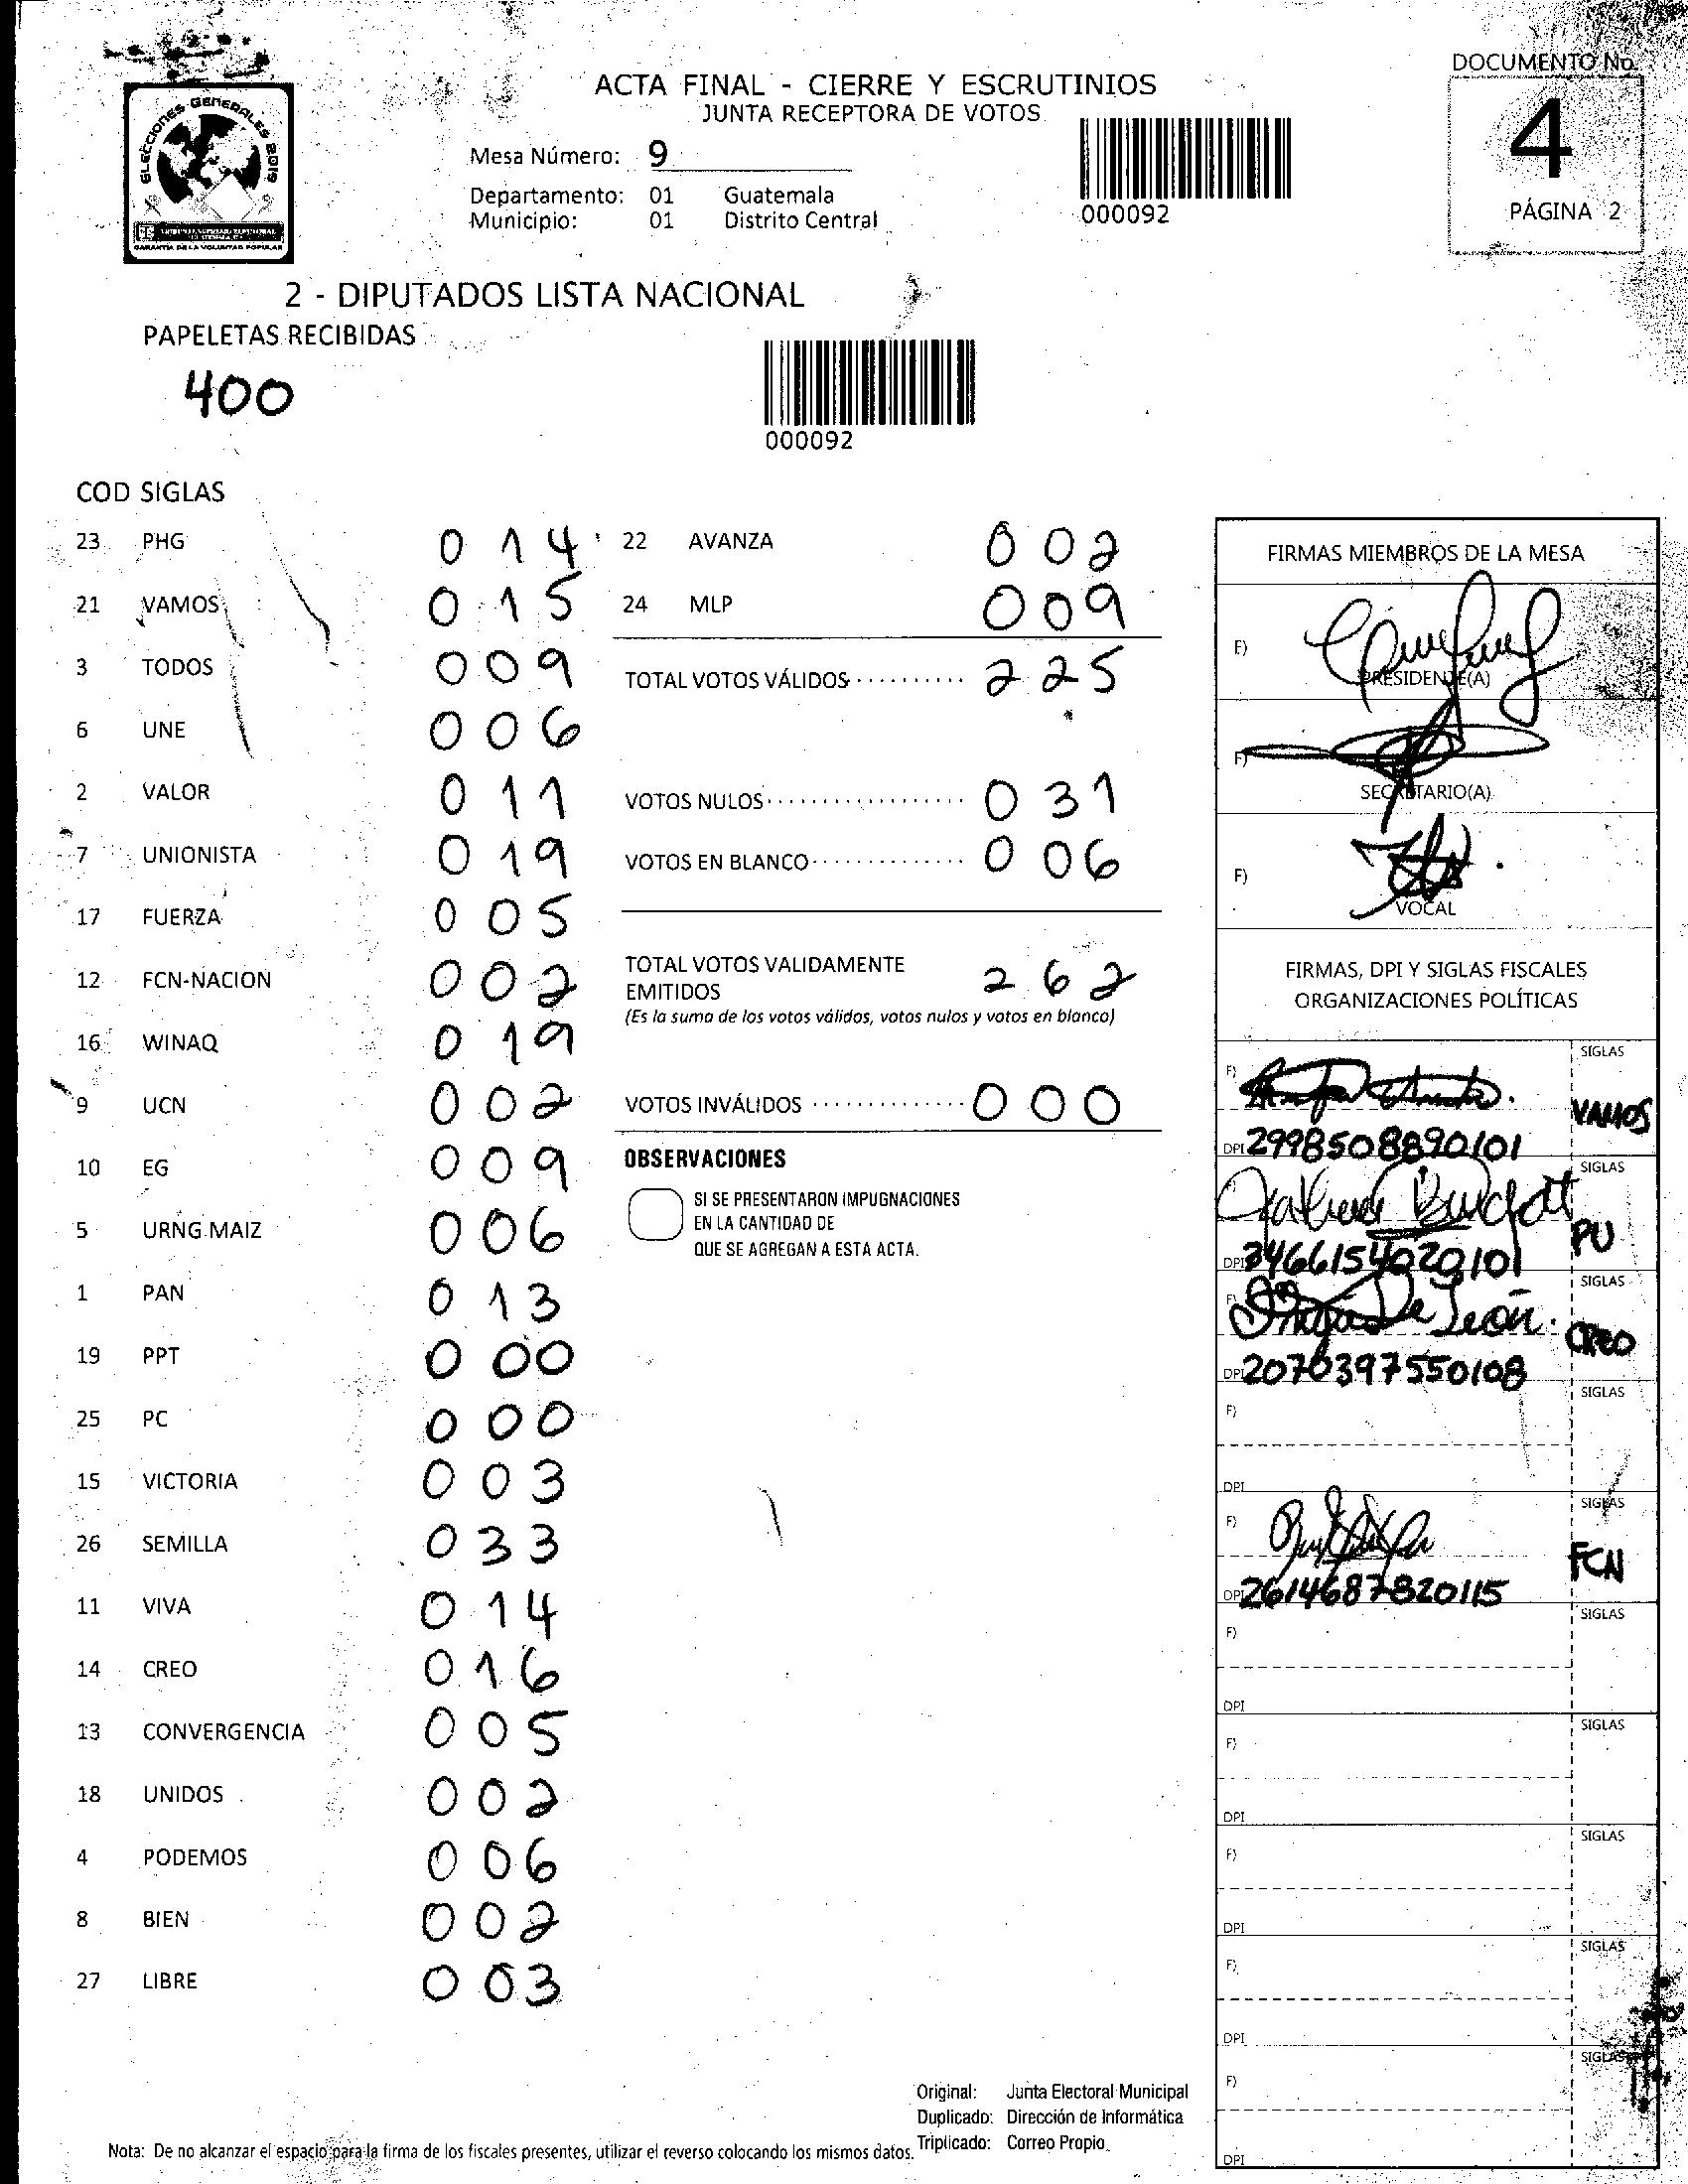 DOCUMENTO No.
4
PÁGINA 2
ELECCIONES GENERALES 2019
GARANTÍA DE LA VOLUNTAD POPULAR
ACTA FINAL - CIERRE Y ESCRUTINIOS
JUNTA RECEPTORA DE VOTOS
Mesa Número: 9
Departamento: 01 Guatemala
Municipio: 01 Distrito Central
000092
2 - DIPUTADOS LISTA NACIONAL
PAPELETAS RECIBIDAS
400
000092
COD SIGLAS
23 PHG 0 1 4
21 VAMOS 0 1 5
3 TODOS 0 0 9
6 UNE 0 0 6
2 VALOR 0 1 1
7 UNIONISTA 0 1 9
17 FUERZA 0 0 5
12 FCN-NACION 0 0 2
16 WINAQ 0 1 9
9 UCN 0 0 2
10 EG 0 0 9
5 URNG MAIZ 0 0 6
1 PAN 0 1 3
19 PPT 0 0 0
25 PC 0 0 0
15 VICTORIA 0 0 3
26 SEMILLA 0 3 3
11 VIVA 0 1 4
14 CREO 0 1 6
13 CONVERGENCIA 0 0 5
18 UNIDOS 0 0 2
4 PODEMOS 0 0 6
8 BIEN 0 0 2
27 LIBRE 0 0 3
22 AVANZA 0 0 2
24 MLP 0 0 9
TOTAL VOTOS VÁLIDOS 2 2 5
VOTOS NULOS 0 3 1
VOTOS EN BLANCO 0 0 6
TOTAL VOTOS VALIDAMENTE
EMITIDOS 2 6 2
(Es la suma de los votos válidos, votos nulos y votos en blanco)
VOTOS INVÁLIDOS 0 0 0
OBSERVACIONES
SI SE PRESENTARON IMPUGNACIONES
EN LA CANTIDAD DE
QUE SE AGREGAN A ESTA ACTA.
FIRMAS MIEMBROS DE LA MESA
F)
PRESIDENTE(A)
F)
SECRETARIO(A)
F)
VOCAL
FIRMAS, DPI Y SIGLAS FISCALES
ORGANIZACIONES POLÍTICAS
F) SIGLAS
VAMOS
DPI 2998508890101
SIGLAS
PU
DPI 3466154020101
F) De León. SIGLAS
CREO
DPI 2070397550108
F) SIGLAS
DPI
F) SIGLAS
FCN
DPI 2614687820115
F) SIGLAS
DPI
F) SIGLAS
DPI
F) SIGLAS
DPI
F) SIGLAS
DPI
F) SIGLAS
DPI
Original: Junta Electoral Municipal
Duplicado: Dirección de Informática
Triplicado: Correo Propio
Nota: De no alcanzar el espacio para la firma de los fiscales presentes, utilizar el reverso colocando los mismos datos.